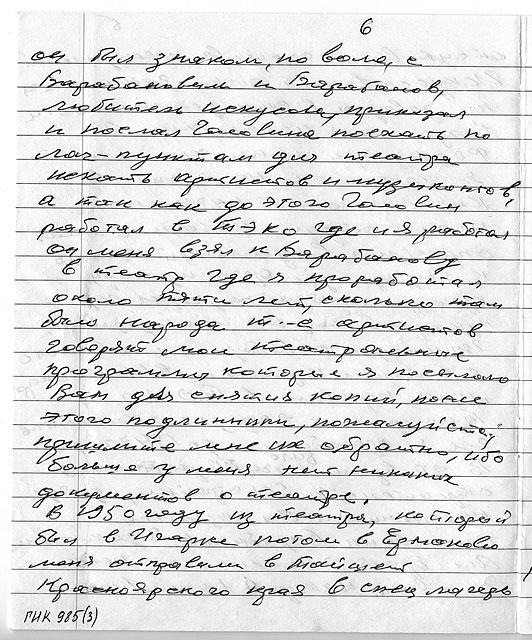 6
он был знаком, по воле, с
Барабановым и Барабанов,
любитель искусства, приказал
и послал Головина поехать по
лаг-пунктам для театра
искать артистов и музыкантов,
а так как до этого Головин
работал в ТЭКО где и я работал
он меня взял к Барабанову
в театр где я проработал
около пяти лет, сколько там
было народа т-е артистов
говорят мои театральные
программы которые я посылаю
Вам для снятия копий, после
этого подлинники, пожалуйста,
пришлите мне их обратно, ибо
больше у меня нет никаких
документов о театре.
В 1950 году из театра, который
был в Игарке потом в Ермаково
меня отправили в Тайшет
Красноярского края в спец лагерь
ГИК 985(3)